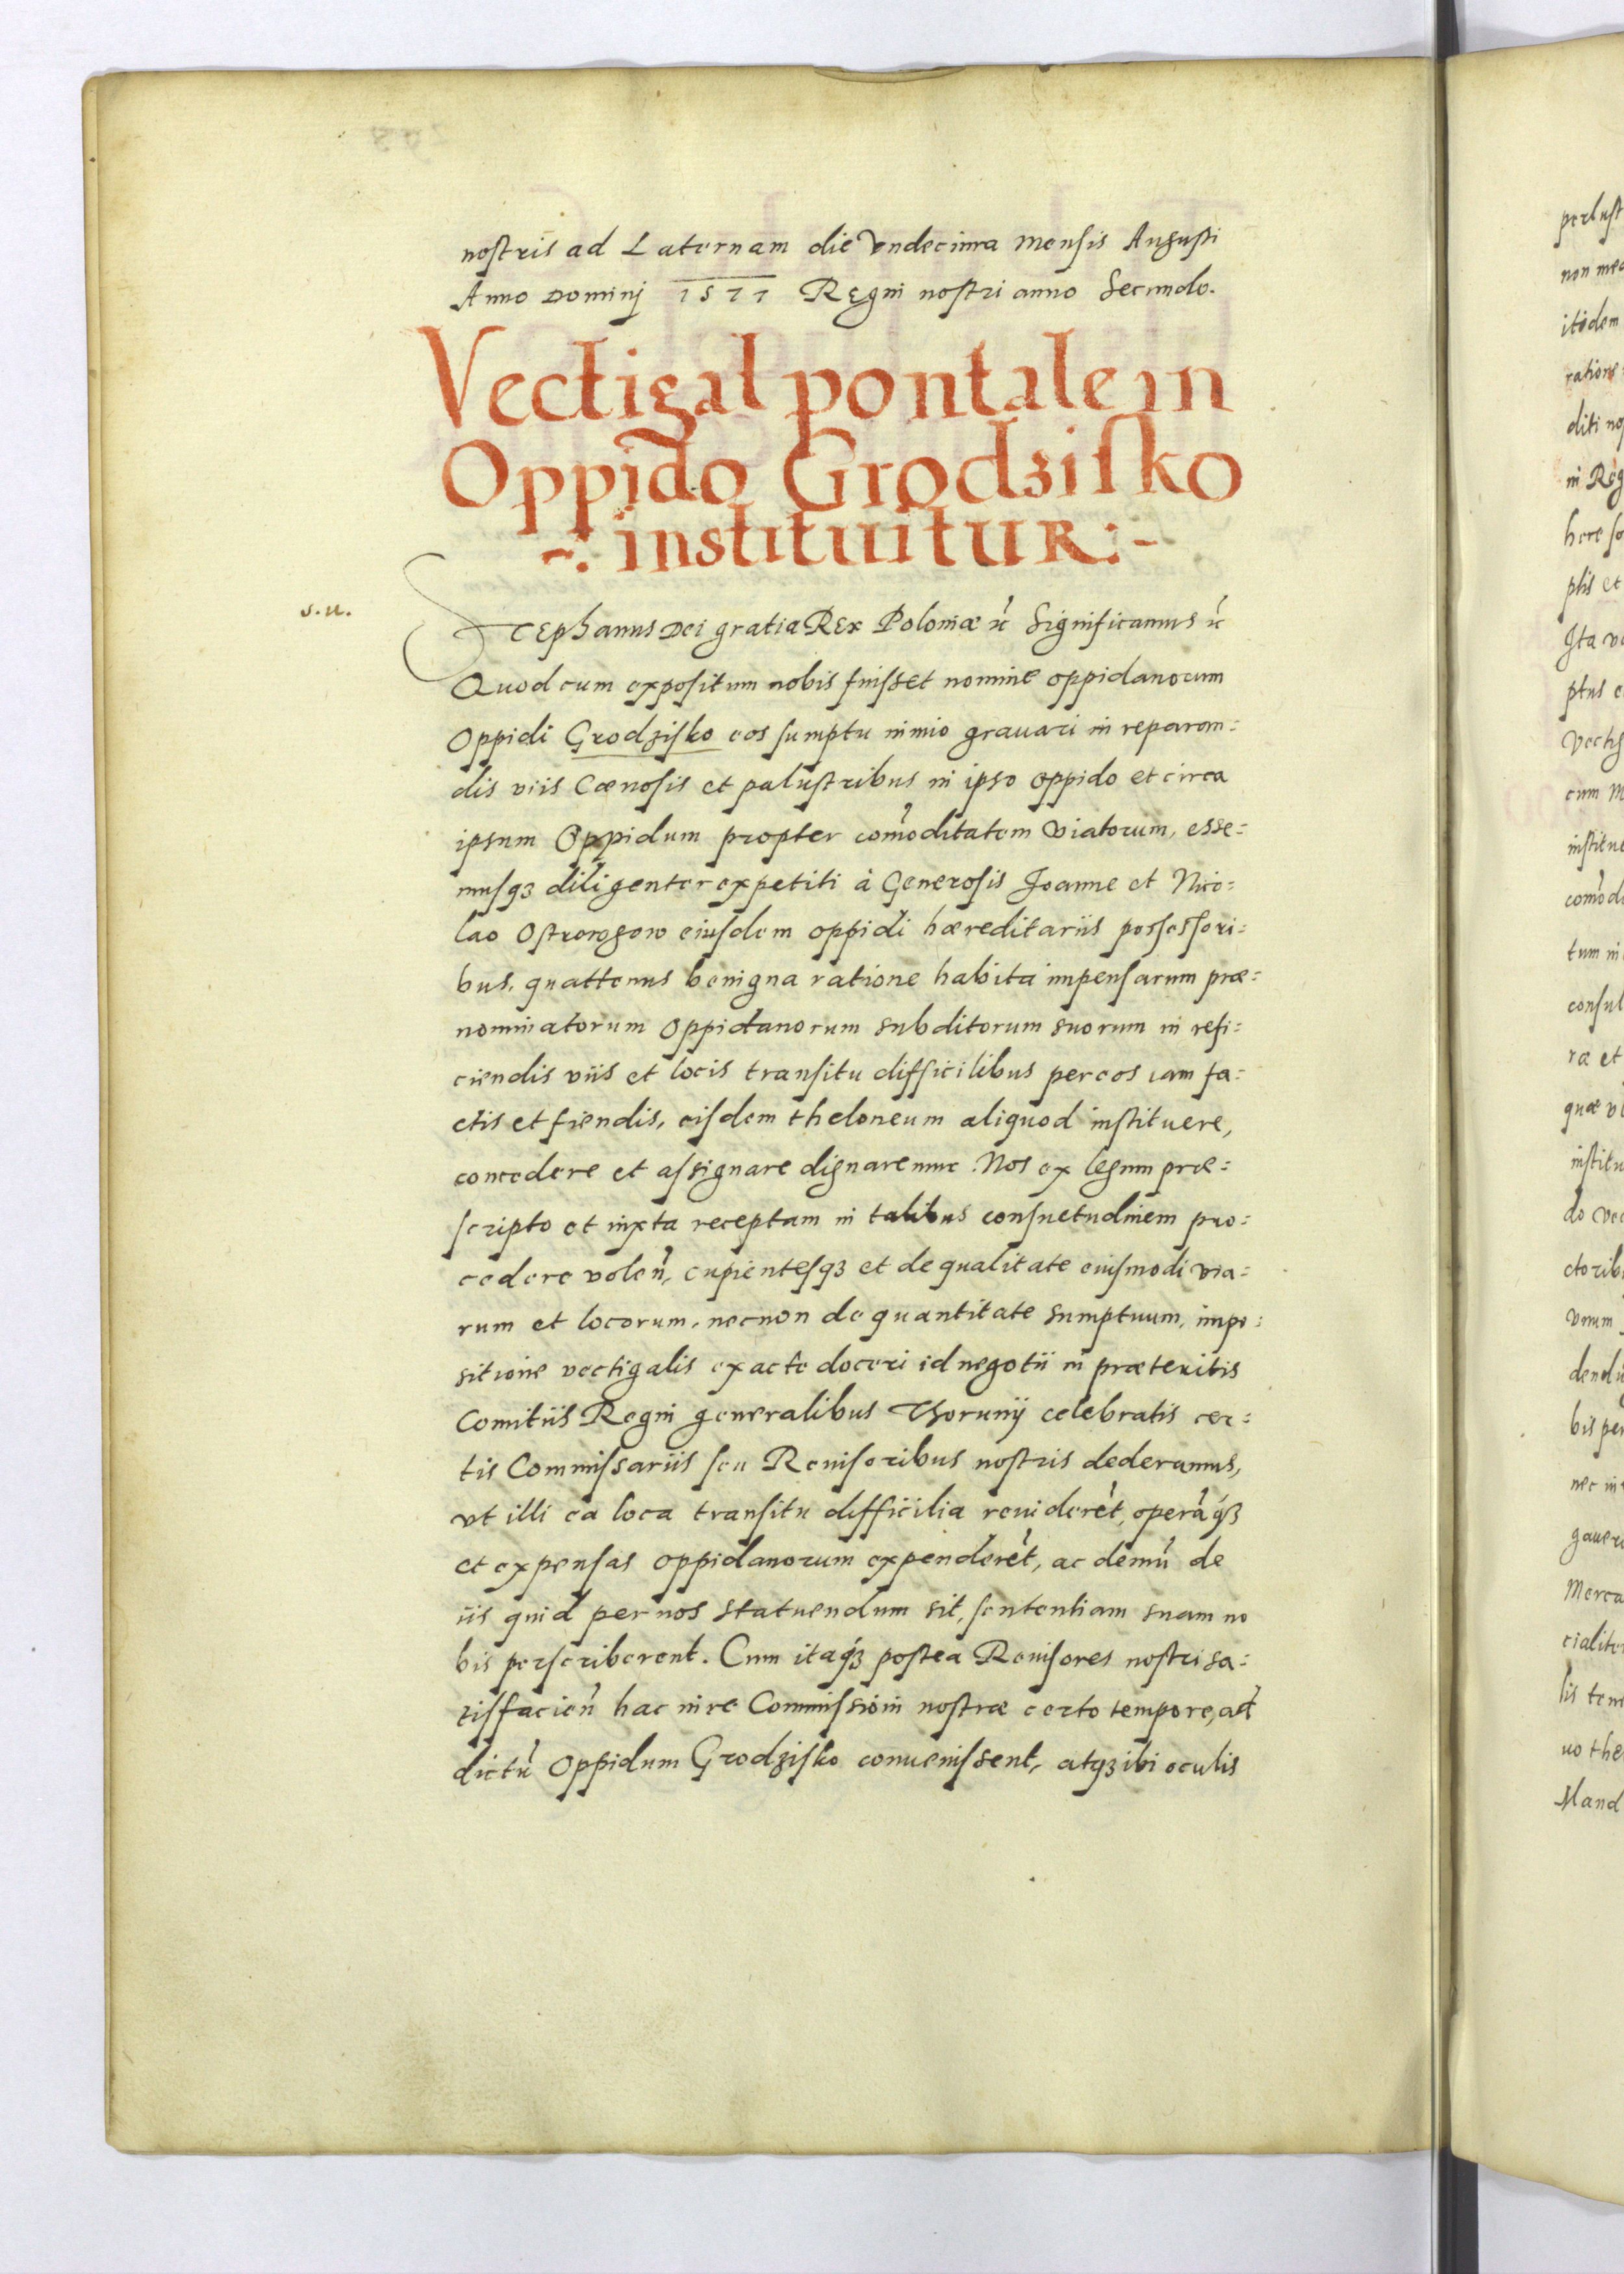 nostris ad Laternam die Vndecima mensis Augusti
Anno Dominj 1577 Regni nostri anno Secundo.
Vectigal pontale in
Oppido Grodzisko
~: instituitur:-
s.u.
Stephanus Dei gratia Rex Poloniæ &c̃ Significamus &c̃
Quod cum expositum nobis fuisset nomine oppidanorum
Oppidi Grodzisko eos sumptu nimio grauari in reparan=
dis viis Cœnosis et palustribus in ipso oppido et circa
ipsum Oppidum propter com̃oditatem Viatorum, esse=
musqꝫ diligenter expetiti à Generosis Joanne et Nico=
lao Ostrorogow eiusdem oppidi hæreditariis possessori=
bus, quattenus benigna ratione habita impensarum præ=
nominatorum Oppidanorum subditorum suorum in refi=
ciendis viis et locis transitu difficilibus per eos iam fa=
ctis et fiendis, eisdem theloneum aliquod instituere,
concedere et assignare dignaremur. Nos ex legum præ=
scripto et iuxta receptam in talibus consuetudinem pro=
cedere volen̄, cupientesqꝫ et de qualitate eiusmodi via=
rum et locorum, necnon de quantitate sumptuum, impo=
sitione vectigalis exacte doceri id negotii in præteritis
Comitiis Regni generalibus Thorunij celebratis cer=
tis Commissariis seu Reuisoribus nostris dederamus,
vt illi ea loca transitu difficilia reuiderēt, operāqꝫ
et expensas oppidanorum expenderēt, ac demū de
iis quid per nos statuendum sit, sententiam suam no
bis perscriberent. Cum itaqꝫ postea Reuisores nostri sa=
tisfacien̄ hac in re Commissioni nostræ certo tempore, ad
dictū Oppidum Grodzisko conuenissent, atqꝫ ibi oculis